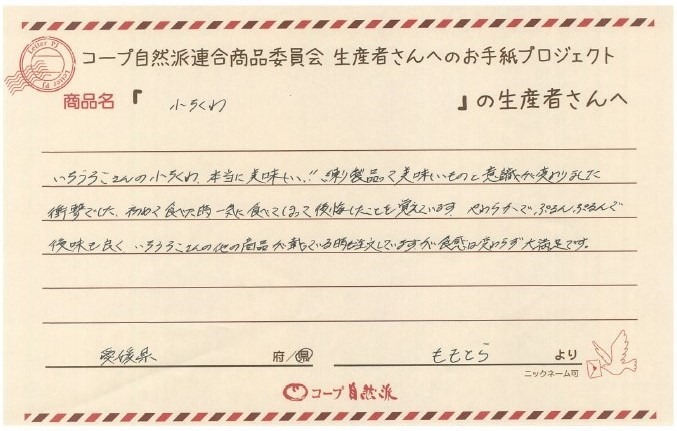 Letter PJ
Letter PJ
コープ自然派連合商品委員会 生産者さんへのお手紙プロジェクト
商品名『 小ちくわ 』の生産者さんへ
いちうろこさんの小ちくわ、本当に美味しい!! 練り製品って美味いものと意識が変わりました
衝撃でした、初めて食べた時一気に食べてしまって後悔したことを覚えています やわらかで、ぷるん、ぷるんで
後味も良く いちうろこさんの他の商品が載っている時も注文していますが食感は変わらず大満足です。
愛媛県 府/県 ももとら より
ニックネーム可
コープ自然派